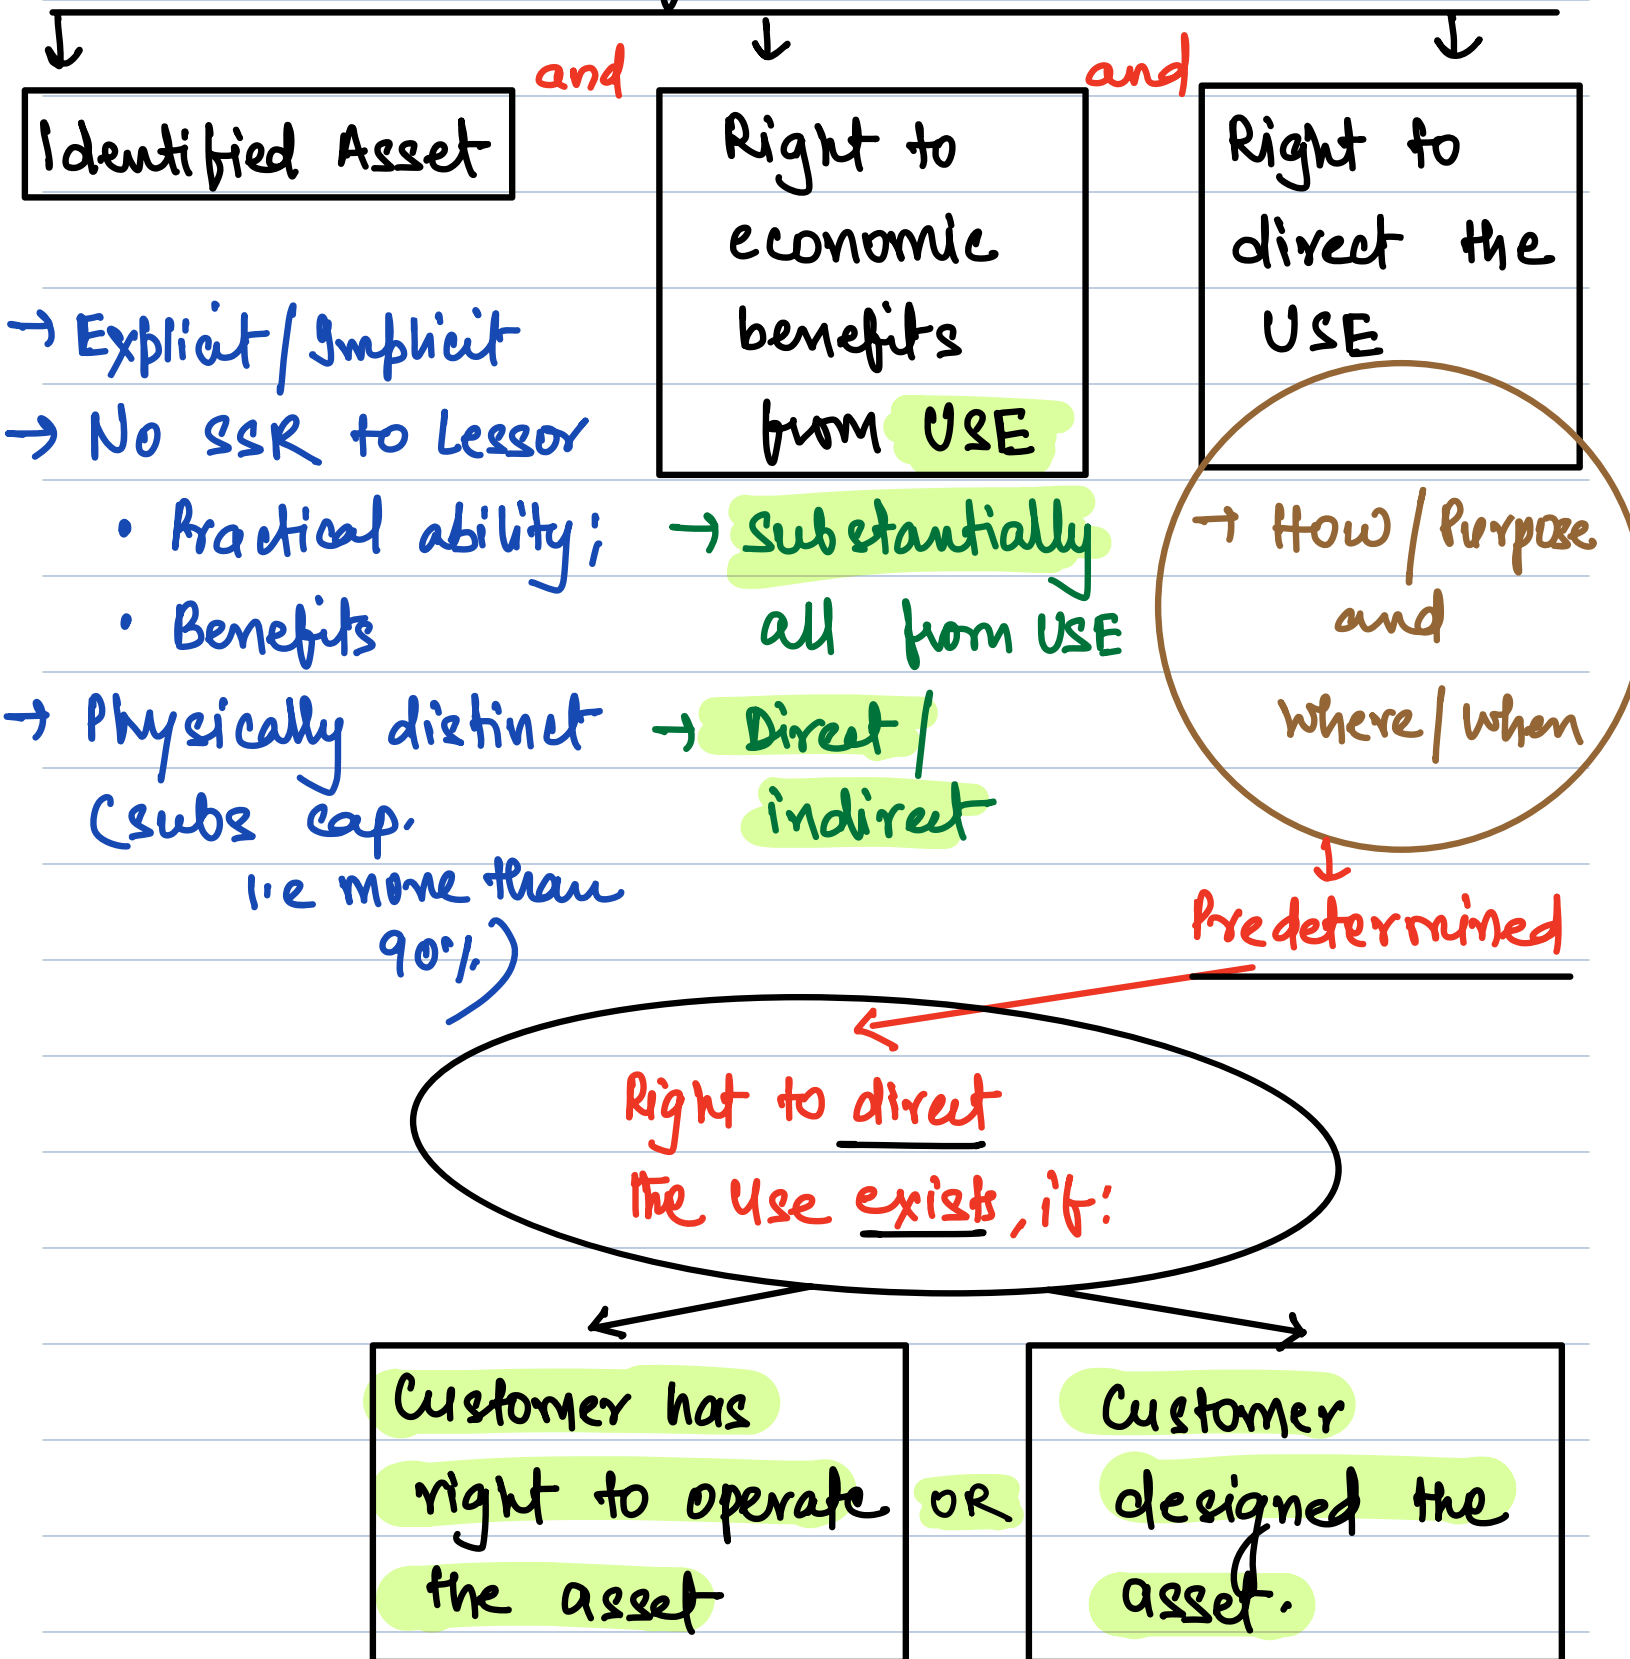 and
and
Identified Asset
Right to
economic
benefits
from USE
Right to
direct the
USE
→ Explicit/Implicit
→ No SSR to Lessor
• Practical ability;
• Benefits
→ Physically distinct
(subs cap.
i.e more than
90%)
→ Substantially
all from USE
→ Direct/
indirect
→ How/Purpose
and
where/when
Predetermined
Right to direct
the Use exists, if:
Customer has
right to operate
the asset
OR
Customer
designed the
asset.